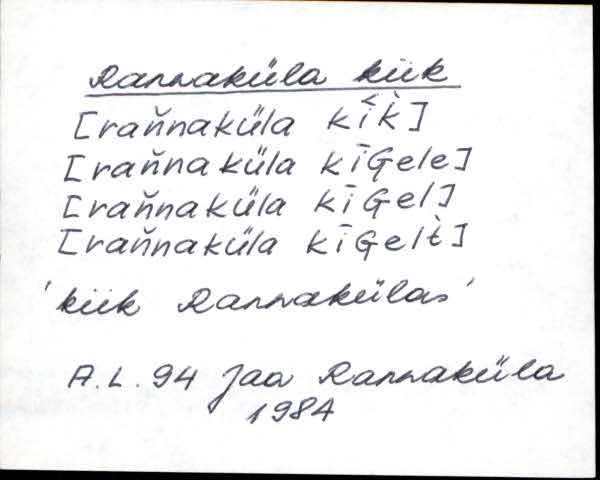 Rannaküla kiik
[raňnaküla kī̬k̀]
[raňnaküla kīɢele]
[raňnaküla kīɢel]
[raňnaküla kīɢelt̀]
'kiik Rannakülas'
A.L. 94 Jaa Rannaküla
1984